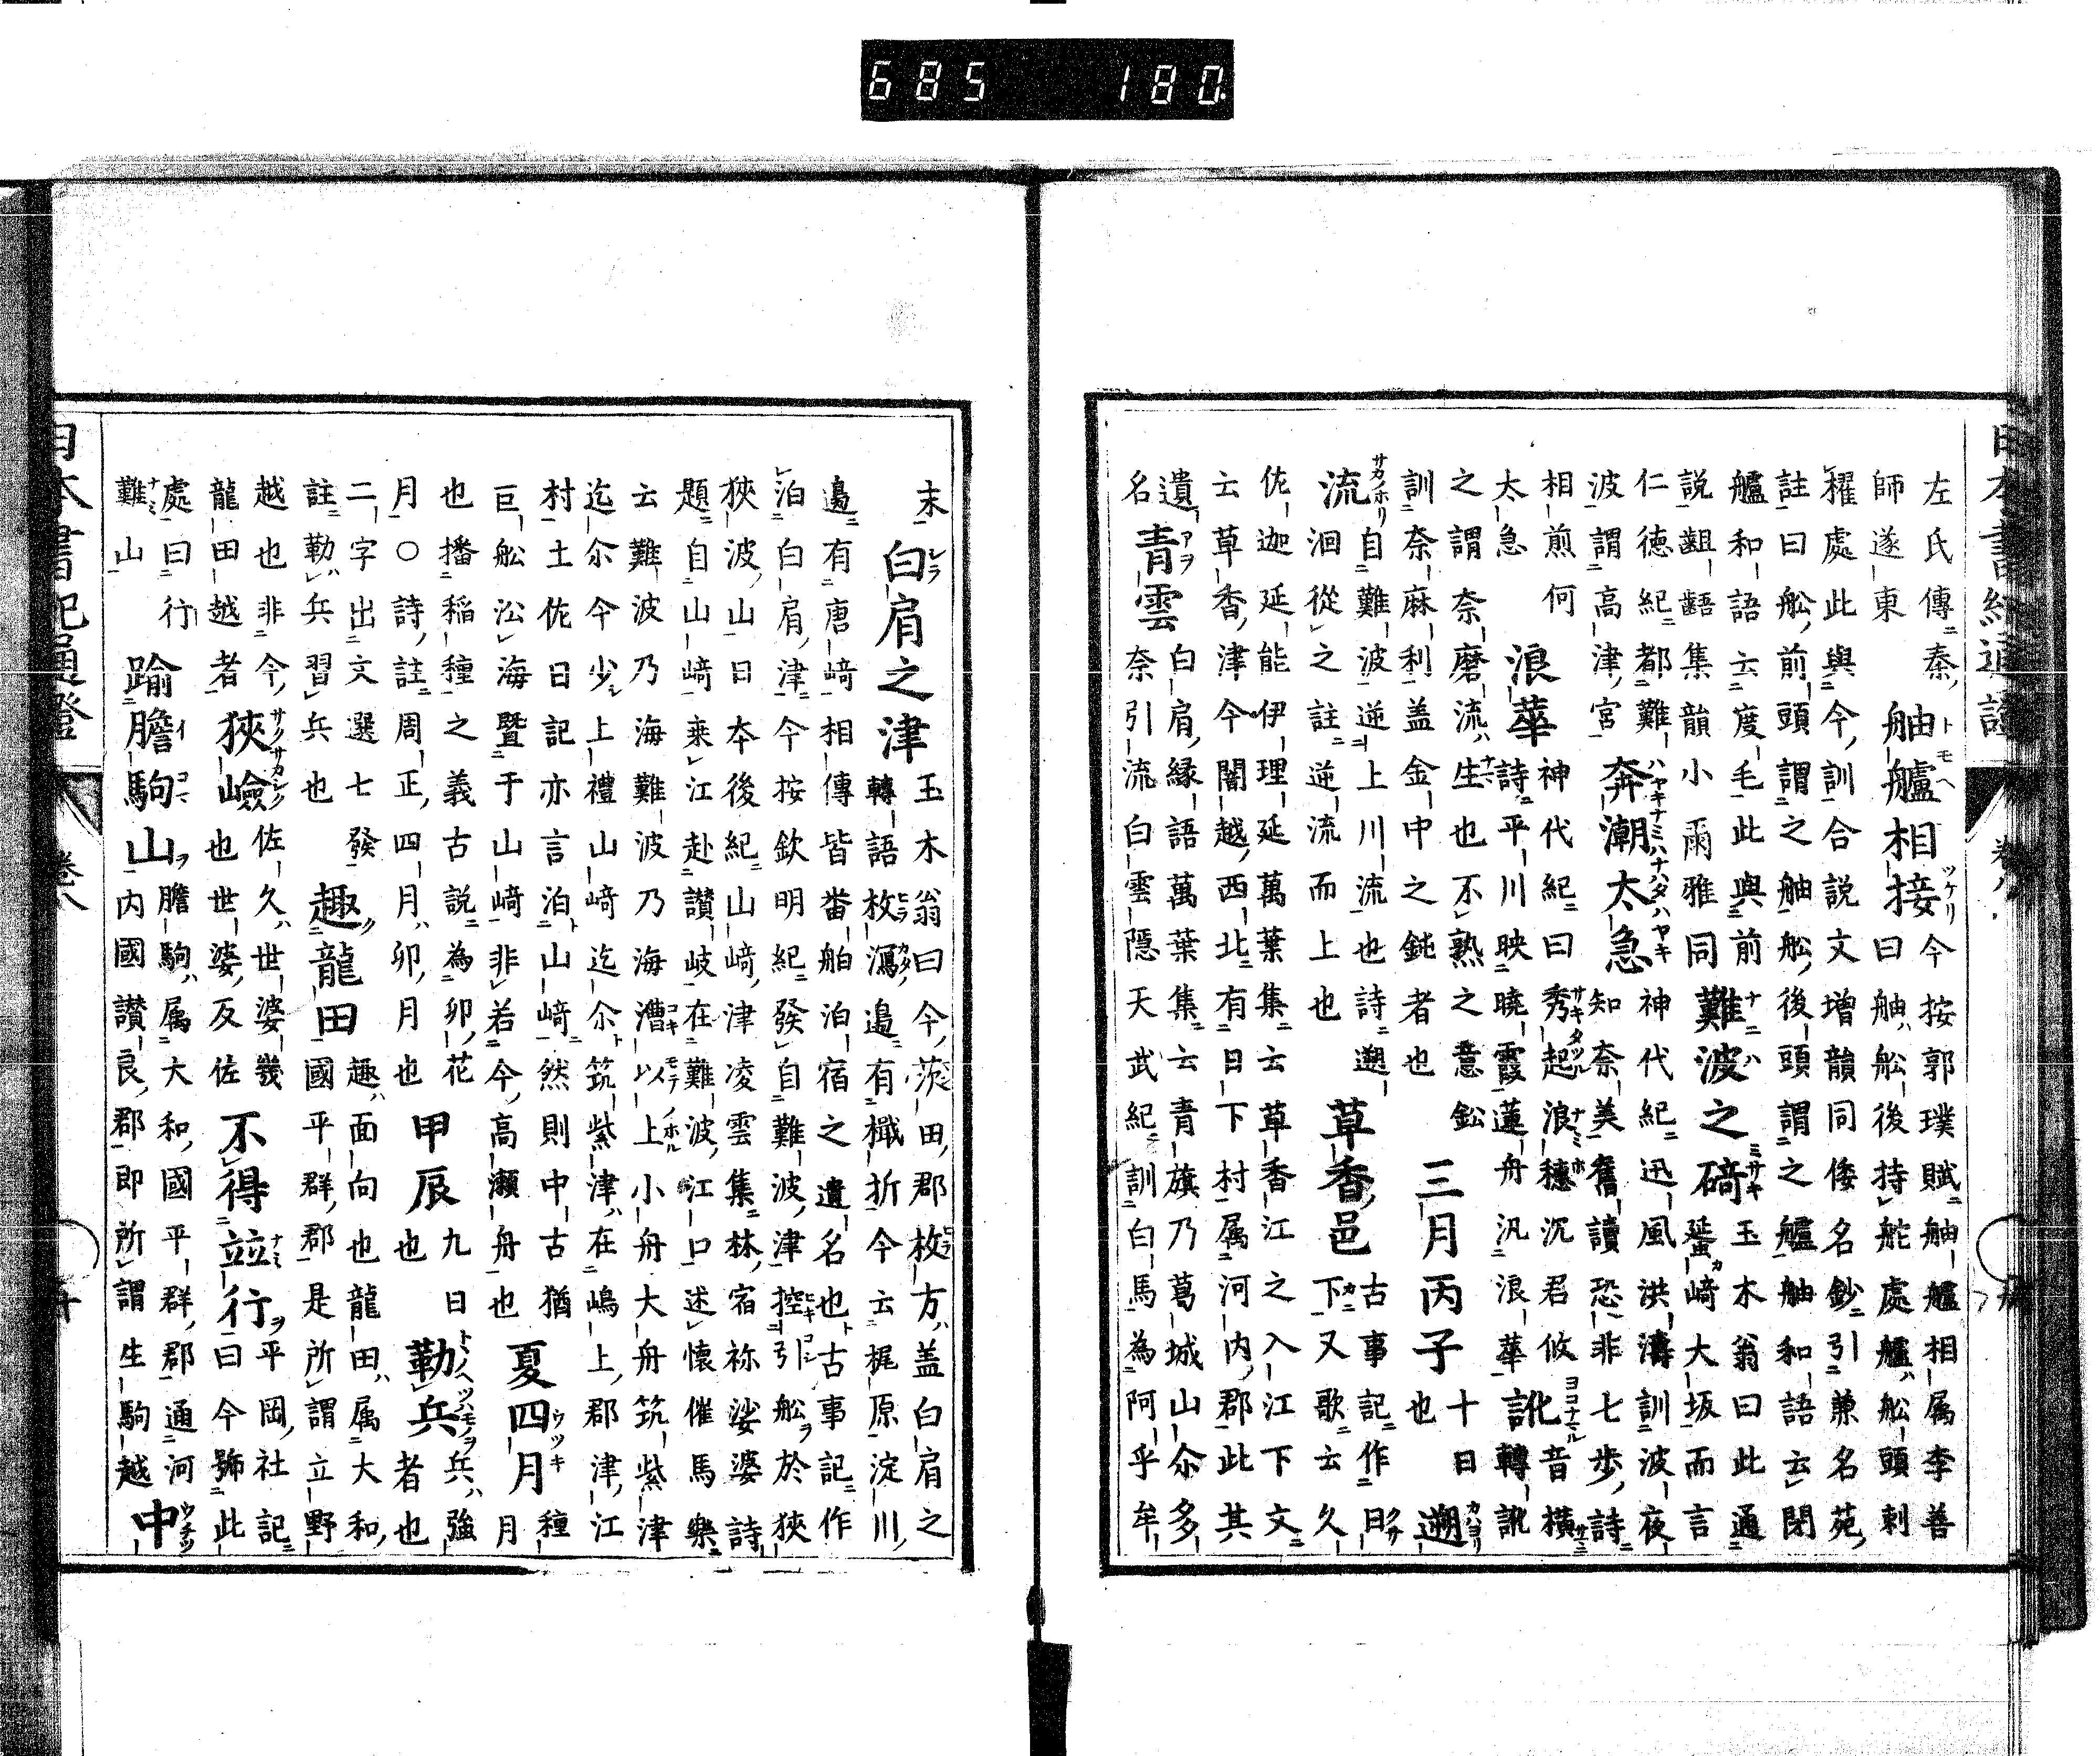 日本書紀通證 巻八
左氏傳秦師遂東舳艫相接今按郭璞賦舳艫相属李善曰舳船後持舵處艫船頭刺
櫂處此與今訓合説文增韻同倭名鈔引兼名苑註曰船前頭謂之舳船後頭謂之艫舳和語云閉
艫和語云度毛此與前説齟齬集韻小爾雅同難波之碕玉木翁曰此通蜑崎大坂而言
仁徳紀都難波謂高津宮奔潮太急神代紀迅風洪濤訓波夜知奈美舊讀恐非七歩詩
相煎何太急浪華神代紀曰秀起浪穗沉君攸詩平川映曉霞蓮舟汎浪華訛音横轉訛
之謂奈磨流生也不熟之意鈆訓奈麻利盖金中之鈍者也三月丙子十日也遡
流自難波逆上川流也詩遡洄從之註逆流而上也草香邑古事記作日下又歌云久
佐迦延能伊理延萬葉集云草香江之入江下文云草香津今闇越西北有日下村属河内郡此其
遺名青雲白肩縁語萬葉集云青旗乃葛城山尒多奈引流白雲隠天武紀訓白馬為阿乎牟
末白肩之津玉木翁曰今茨田郡枚方盖白肩之轉語枚潟邉有檝折今云梶原淀川
邉有唐崎相傳皆畨舶泊宿之遺名也古事記作泊白肩津今按欽明紀發自難波津控引船於狹
狹波山日本後紀山崎津凌雲集林宿祢娑婆詩題自山崎乗江赴讃岐在難波江口述懐催馬樂
云難波乃海難波乃海漕以上小舟大舟筑紫津迄尒今少上禮山崎迄尒筑紫津在嶋上郡津江
村土佐日記亦言泊山崎然則中古猶巨船㳂海曁于山崎非若今高瀬舟也夏四月種月
也播稲種之義古説為卯花月〇詩註周正四月卯月也甲辰九日也勒兵兵強者也
二字出文選七發註勒兵習兵也趣龍田趣面向也龍田属大和國平群郡是所謂立野
越也非今龍田越者狹嶮佐久世婆幾也世婆反佐不得竝行平岡社記曰今號此
處曰行難山踰膽駒山膽駒属大和國平群郡通河内國讃良郡即所謂生駒越中
日本書紀通證 巻八
685 180